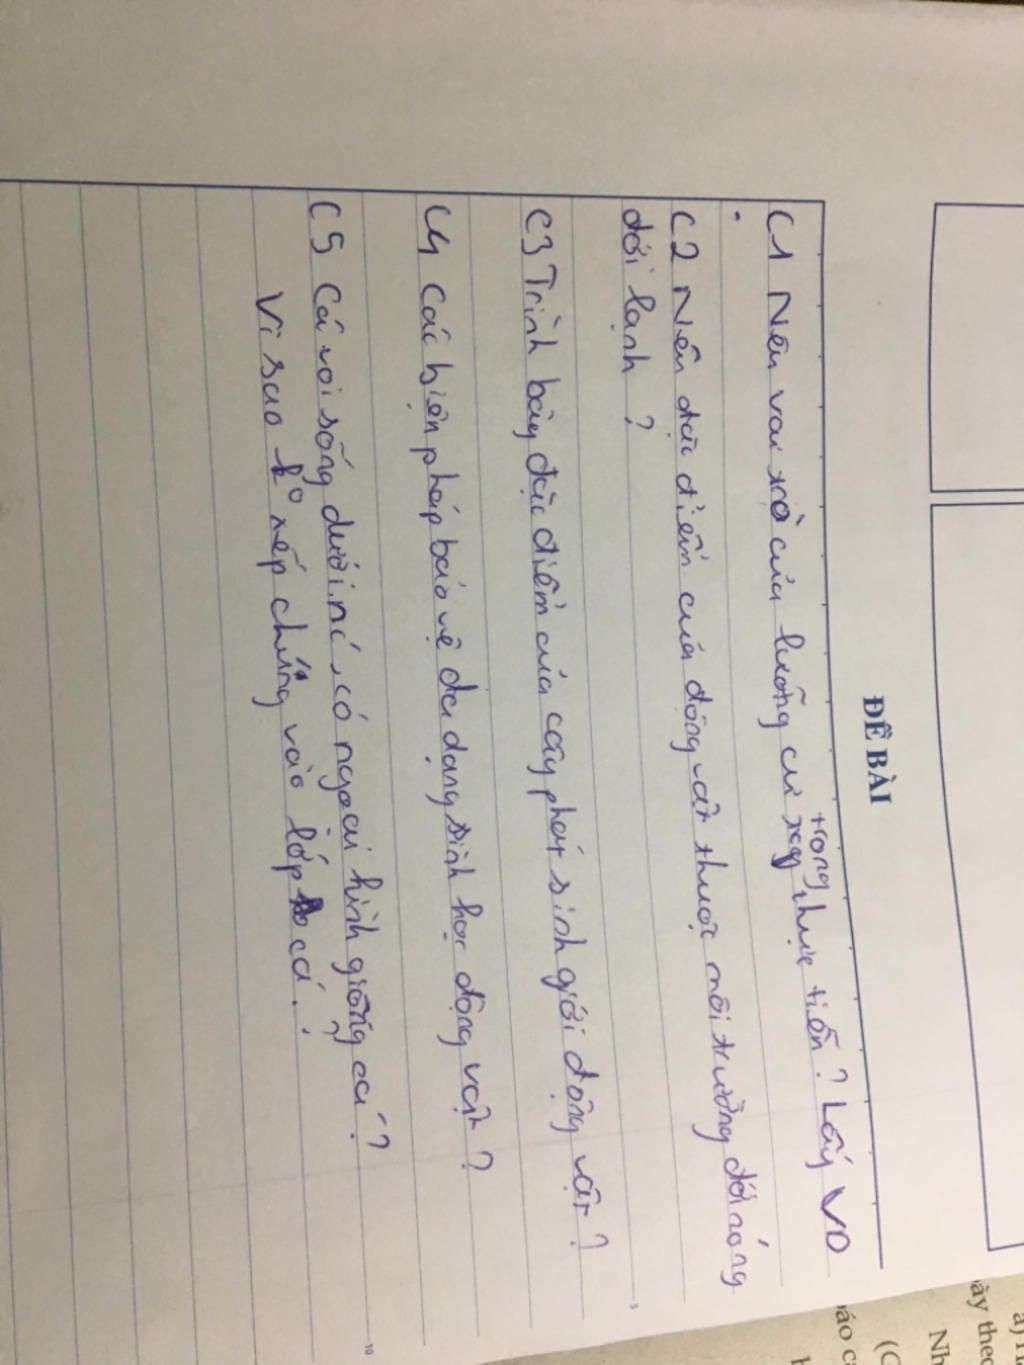 ĐỀ BÀI
C1 Nêu vai trò của lưỡng cư trong thực tiễn? Lấy VD
C2 Nêu đặc điểm của động vật thuộc môi trường đới nóng
đới lạnh ?
C3 Trình bày đặc điểm của cây phát sinh giới động vật ?
C4 Các biện pháp bảo vệ đa dạng sinh học động vật ?
C5 Cá voi sống dưới nc, có ngoại hình giống cá ?
Vì sao ko xếp chúng vào lớp cá.
5
10